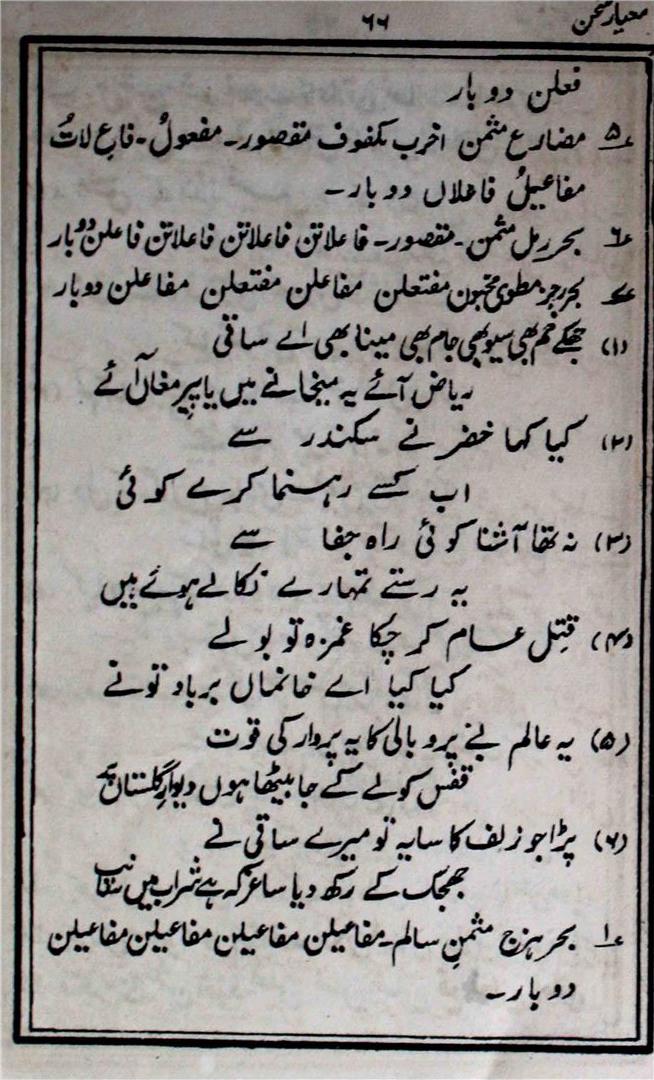 معیار سخن
۶۶
فعلن دو بار
۵ مضارع مثمن اخرب مکفوف مقصور۔ مفعولُ۔ فاع لاتُ
مفاعیلُ فاعلاں دو بار۔
۶ بحر رمل مثمن۔ مقصور۔ فاعلاتن فاعلاتن فاعلاتن فاعلن دوبار
۷ بحر رجز مطوی مخبون مفتعلن مفاعلن مفتعلن مفاعلن دو بار
(۱) جھکے خم بھی سبو بھی جام بھی مینا بھی اے ساقی
ریاض آئے یہ میخانے میں یا پیرِ مغاں آئے
(۲) کیا کہا خضر نے سکندر سے
اب کسے رہنما کرے کوئی
(۳) نہ تھا آشنا کوئی راہ جفا سے
یہ رستے تمہارے نکالے ہوئے ہیں
(۴) قتلِ عام کر چکا غمزہ تو بولے
کیا کیا اے خانماں برباد تونے
(۵) یہ عالم بے پر و بالی کا یہ پرواز کی قوت
قفس کو لے کے جا بیٹھا ہوں دیوارِ گلستاں پہ
(۶) پڑا جو زلف کا سایہ تو میرے ساقی نے
جھجک کے رکھ دیا ساغر کہ ہے شراب میں سانپ
۱ بحر ہزج مثمنِ سالم۔ مفاعیلن مفاعیلن مفاعیلن مفاعیلن
دو بار۔